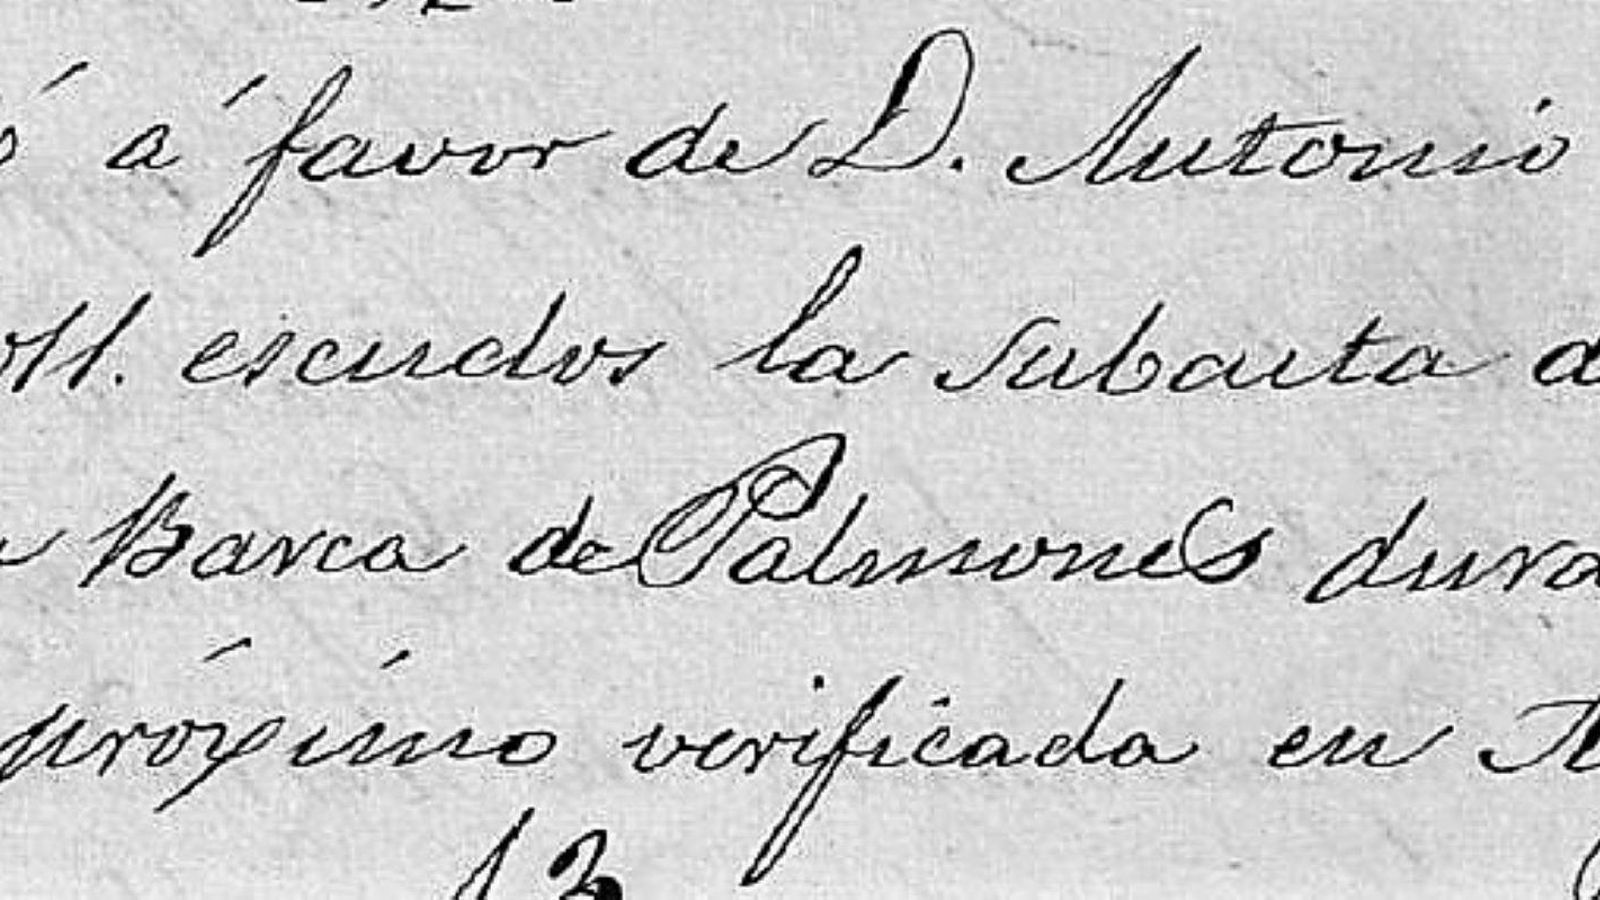 á favor de D. Antonio
escudos la subasta d
Barca de Palmones dura
próximo verificada en
13